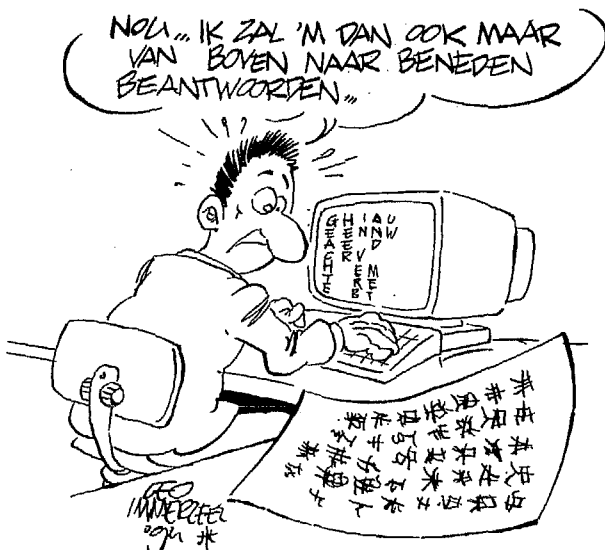 NOU... IK ZAL 'M DAN OOK MAAR
VAN BOVEN NAAR BENEDEN
BEANTWOORDEN...
GEACHTE
HEER
IN VERB
AND MET
UW
GEO
IMMERZEEL